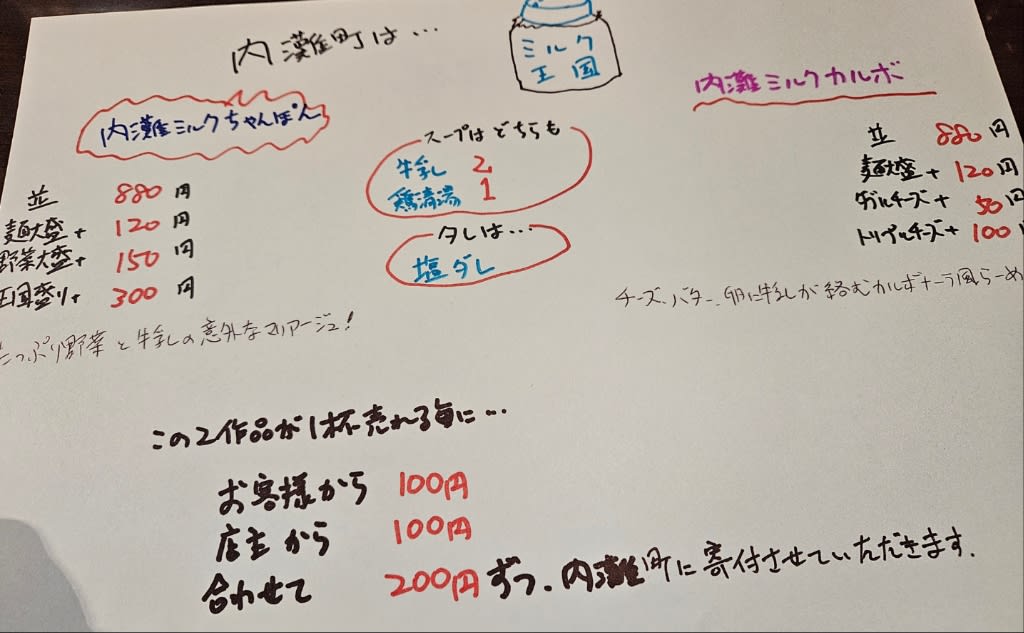 内灘町は…
ミルク
王国
内灘ミルクちゃんぽん
並 880円
麺大盛+ 120円
野菜大盛+ 150円
王国盛り+ 300円
たっぷり野菜と牛乳の意外なマリアージュ!
スープはどちらも
牛乳 2
鶏清湯 1
タレは…
塩ダレ
内灘ミルクカルボ
並 880円
麺大盛+ 120円
ダブルチーズ+ 50円
トリプルチーズ+ 100円
チーズ、バター、卵に牛乳が絡むカルボナーラ風らーめ
この2作品が1杯売れる毎に…
お客様から 100円
店主から 100円
合わせて 200円ずつ、内灘町に寄付させていただきます.